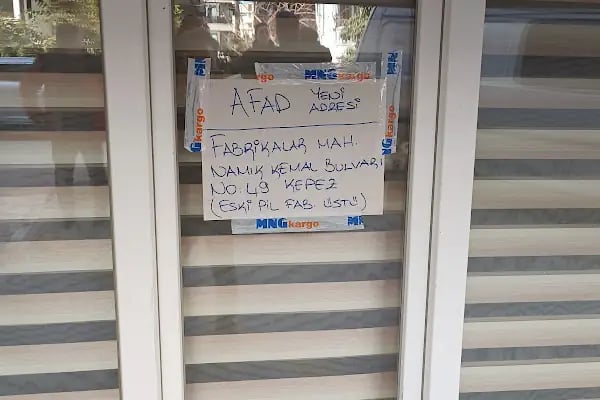 MNG kargo
AFAD YENİ ADRESİ
FABRİKALAR MAH.
NAMIK KEMAL BULVARI
NO: 49 KEPEZ
(ESKİ PİL FAB. ÜSTÜ)
MNG kargo
MNG kargo
MNG kargo